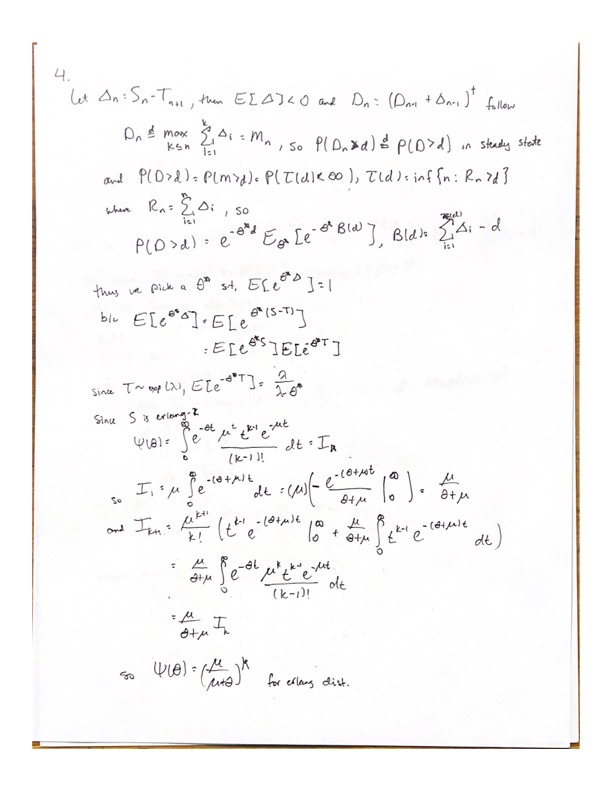 4.
Let Δn = Sn - Tn+1, then E[Δ] < 0 and Dn = (Dn-1 + Δn-1)⁺ follow
Dn =ᵈ max_{k≤n} Σ_{i=1}^{k} Δi = Mn, so P(Dn > d) =ᵈ P(D > d) in steady state
and P(D>d) = P(M>d) = P(τ(d) < ∞), τ(d) = inf{n : Rn > d}
where Rn = Σ_{i=1}^{n} Δi, so
P(D>d) = e^{-θ*d} E_{θ*}[e^{-θ* B(d)}], B(d) = Σ_{i=1}^{τ(d)} Δi - d
thus we pick a θ* s.t. E[e^{θ*Δ}] = 1
b/c E[e^{θ*Δ}] = E[e^{θ*(S-T)}]
= E[e^{θ*S}] E[e^{-θ*T}]
since T ~ exp(λ), E[e^{-θ*T}] = λ / λ-θ*
Since S is erlang-k
Ψ(θ) = ∫_0^∞ e^{-θt} μ^k t^{k-1} e^{-μt} / (k-1)! dt = I_k
so I_1 = μ ∫_0^∞ e^{-(θ+μ)t} dt = (μ)(- e^{-(θ+μ)t} / θ+μ |_0^∞) = μ / θ+μ
and I_{k+1} = μ^{k+1} / k! (t^{k-1} e^{-(θ+μ)t} |_0^∞ + μ / θ+μ ∫_0^∞ t^{k-1} e^{-(θ+μ)t} dt)
= μ / θ+μ ∫_0^∞ e^{-θt} μ^k t^{k-1} e^{-μt} / (k-1)! dt
= μ / θ+μ I_k
so Ψ(θ) = (μ / μ+θ)^k for erlang dist.